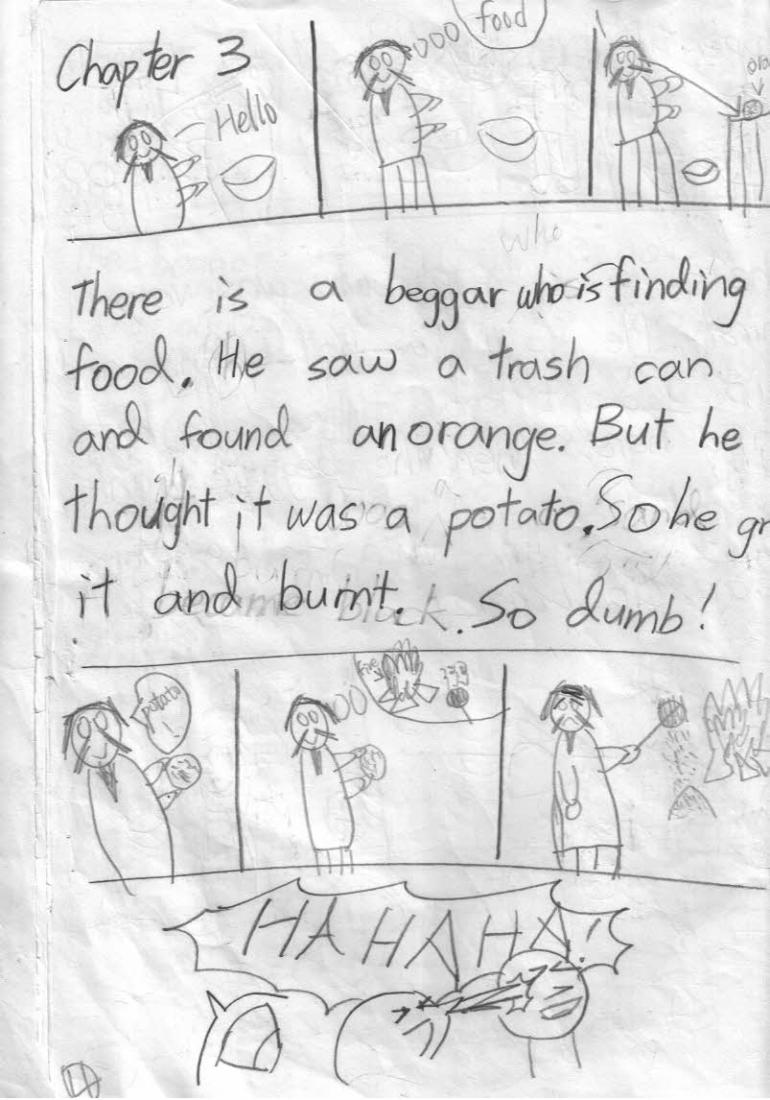 Chapter 3
Hello
food
who
There is a beggar who is finding
food. He saw a trash can
and found an orange. But he
thought it was a potato. So he gr
it and burnt. So dumb!
potato
Fire
HA HA HA!
4